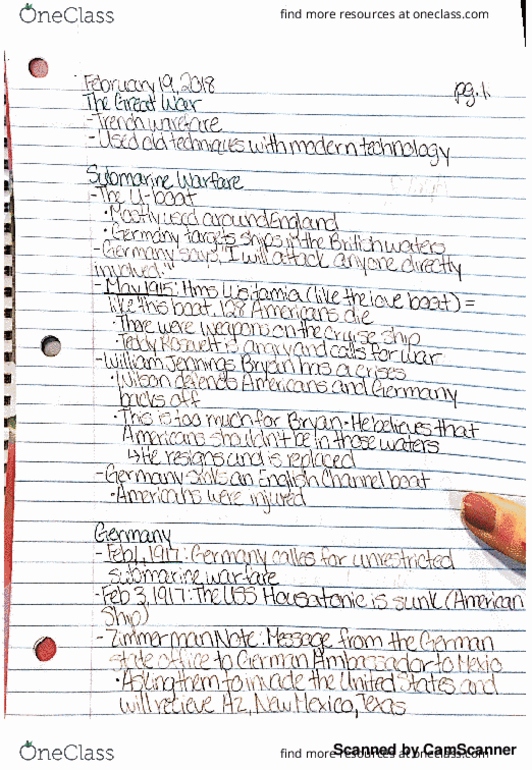 OneClass
find more resources at oneclass.com
February 19, 2018
pg. 1.
The Great War
-Trench warefare
-Used old techniques with modern technology
Submarine Warfare
-The U-boat
•Mostly used around England
•Germany targets ships in the British waters
-Germany says, "I will attack anyone directly
involved."
-May 1915: Hms Lusitamia (like the love boat) =
like this boat. 128 Americans die
•There were weapons on the cruise ship
•Teddy Rosevelt is angry and calls for war
-William Jennings Bryan has a crises
•Wilson defends Americans and Germany
backs off
•This is too much for Bryan-He believes that
Americans shouldn't be in those waters
↳He resigns and is replaced
-Germany sinks an English Channel boat
•Americans were injured
Germany
-Feb 1, 1917: Germany calles for unrestricted
submarine warfare
-Feb 3, 1917: The USS Housatonic is sunk (American
Ship)
-Zimmerman Note: Message from the German
state office to German Ambassador to Mexio
•Asking them to invade the United States and
will recieve AZ, New Mexico, Texas
OneClass
find more resources at oneclass.com
Scanned by CamScanner